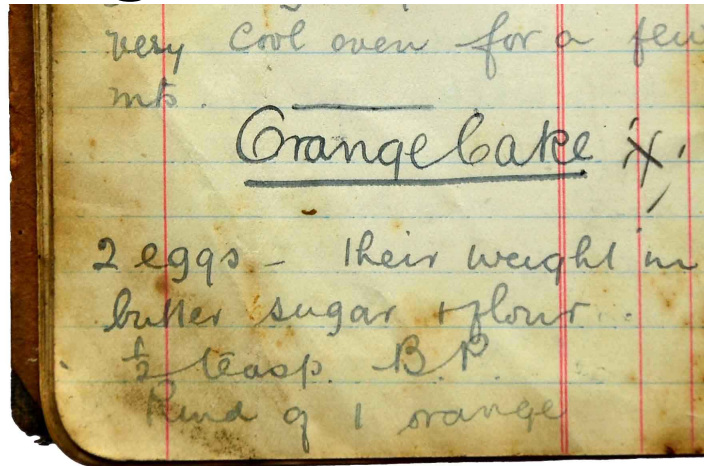 very cool oven for a few
mts.
Orange Cake X
2 eggs - their weight in
butter sugar + flour.
½ teasp. B.P.
Rind of 1 orange